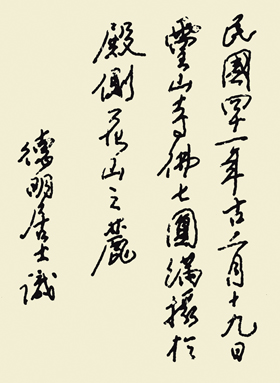 民國四十一年古月十九日
靈山寺佛七圓滿攝於
殿側花山之麓
德明居士識